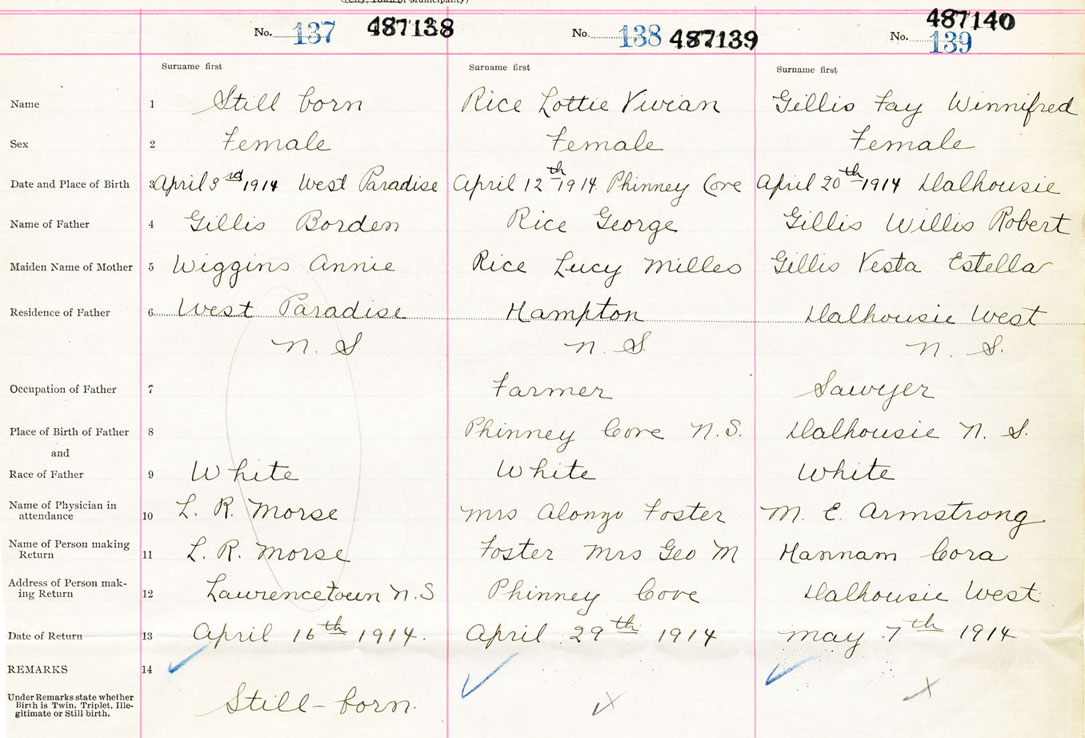 (City, Town or Municipality)
No. 137 487138 No. 138 487139 No. 139 487140
Surname first Surname first Surname first
Name 1 Still born Rice Lottie Vivian Gillis Fay Winnifred
Sex 2 Female Female Female
Date and Place of Birth 3 April 3rd 1914 West Paradise April 12th 1914 Phinney Cove April 20th 1914 Dalhousie
Name of Father 4 Gillis Borden Rice George Gillis Willis Robert
Maiden Name of Mother 5 Wiggins Annie Rice Lucy Milles Gillis Vesta Estella
Residence of Father 6 West Paradise Hampton Dalhousie West
N. S N. S. N. S.
Occupation of Father 7 Farmer Sawyer
Place of Birth of Father 8 Phinney Cove N.S. Dalhousie N. S.
and
Race of Father 9 White White White
Name of Physician in
attendance 10 L. R. Morse Mrs Alonzo Foster M. E. Armstrong
Name of Person making
Return 11 L. R. Morse Foster Mrs Geo M Hannam Cora
Address of Person mak-
ing Return 12 Lawrencetown N.S Phinney Cove Dalhousie West
Date of Return 13 April 16th 1914. April 29th 1914 May 7th 1914
REMARKS 14
Under Remarks state whether
Birth is Twin, Triplet, Ille-
gitimate or Still birth.
Still-born.